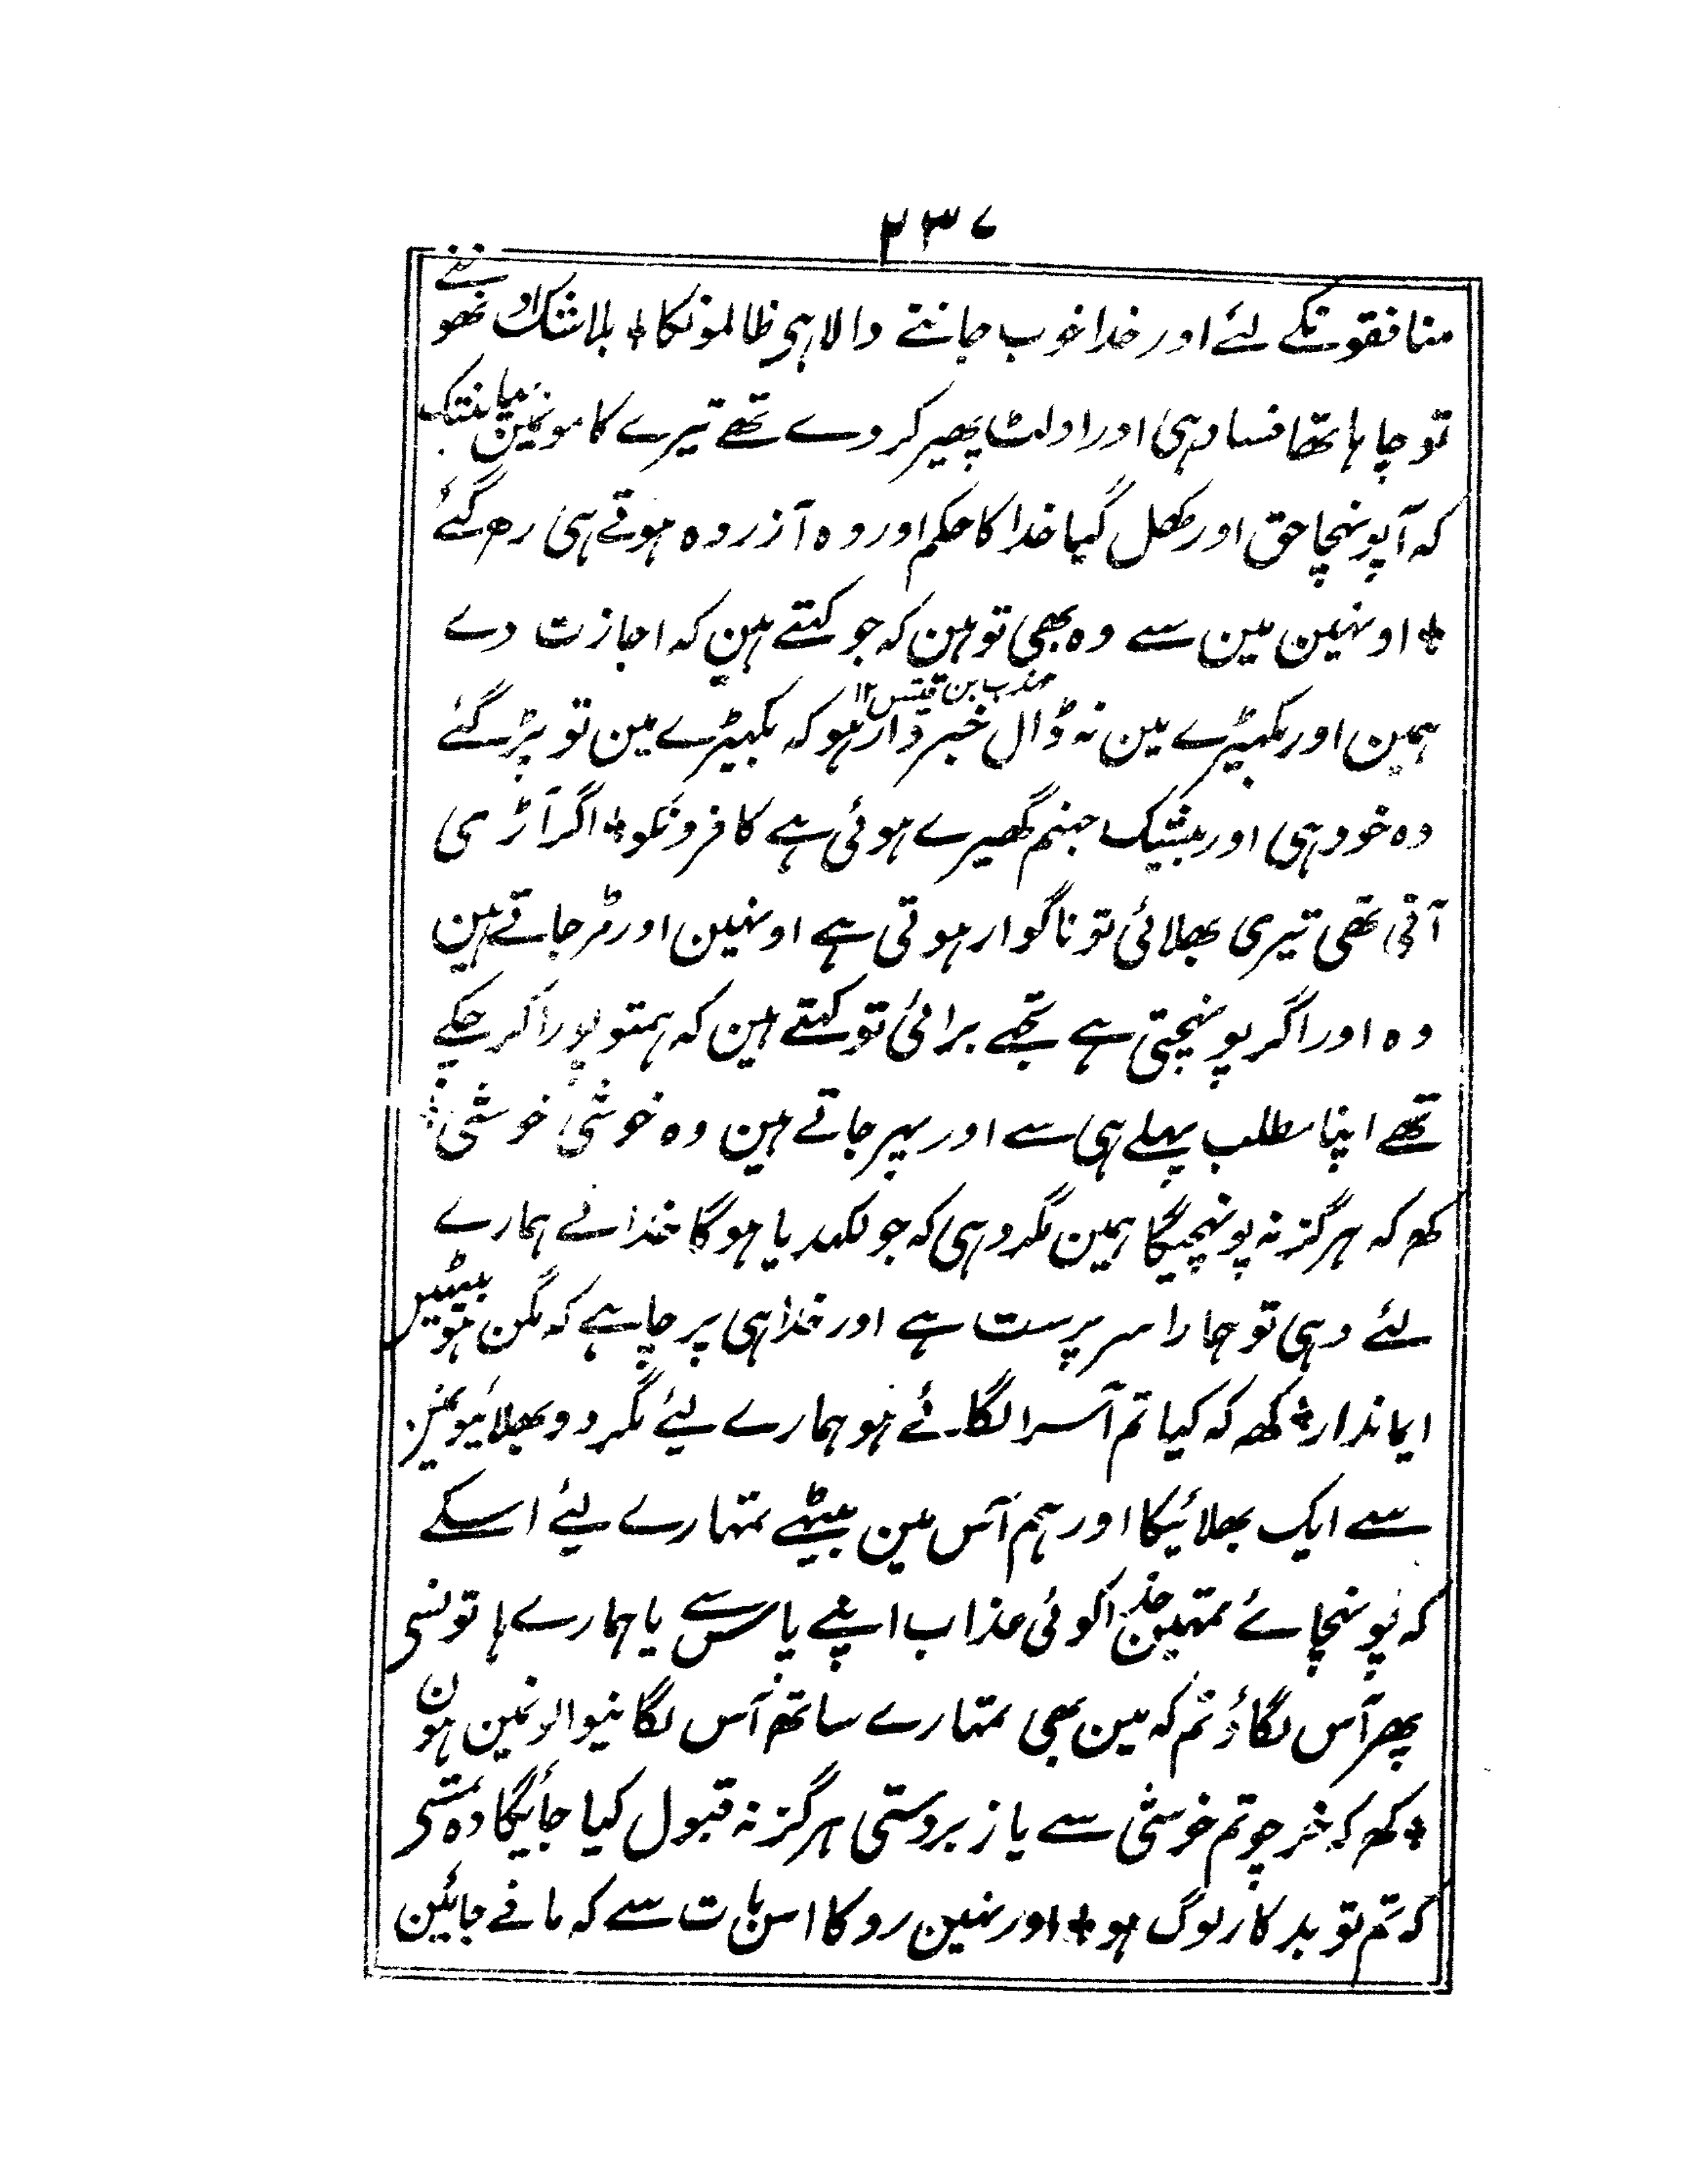 ۲۳۷
منافقونکے لئے اور خدا خوب جاننے والا ہی ظالمونکا + بلاشک اونھوننے
تو چاہا تھا فساد ہی اور اولٹ پھیر کر دے تھے تیرے کامونمین یہانتک
کہ آپونہچا حق اور کھل گیا خدا کا حکم اور وہ آزردہ ہوتے ہی رہ گئے
+ اونہین مین سے وہ بھی تو ہین کہ جو کہتے ہین کہ اجازت دے
جد بن قیس ۱۲
ہمین اور بکہیڑے مین نہ ڈال خبردار ہو کہ بکہیڑے مین تو پڑ گئے
وہ خود ہی اور بیشک جہنم گھیرے ہوئی ہے کافرونکو + اگر آڑی
آتی تھی تیری بھلائی تو ناگوار ہوتی ہے اونہین اور مڑ جاتے ہین
وہ اور اگر پونہچتی ہے تجھے برائی تو کہتے ہین کہ ہمتو پورا کر چکے
تھے اپنا مطلب پہلے ہی سے اور پہر جاتے ہین وہ خوشی خوشی +
کھ کہ ہرگز نہ پونہچیگا ہمین مگر وہی کہ جو لکھدیا ہوگا خدا نے ہمارے
لئے وہی تو ہمارا سرپرست ہے اور خدا ہی پر چاہے کہ مگن ہو بیٹھیں
ایماندار + کھ کہ کیا تم آسرا لگائے ہو ہمارے لیئے مگر دو بھلائیونمین
سے ایک بھلائیکا اور ہم آس مین بیٹھے تمہارے لیئے اسکے
کہ پونہچائے تمہین خدا کوئی عذاب اپنے پاس سے یا ہمارے ہاتونسے
پھر آس لگاؤ تم کہ مین بھی تمہارے ساتھ آس لگانیوالونمین ہون
+ کھ کہ خرچو تم خوشی سے یا زبردستی ہرگز نہ قبول کیا جائیگا وہ تمسے
کہ تم تو بدکار لوگ ہو + اور نہین روکا اس بات سے کہ مانے جائین